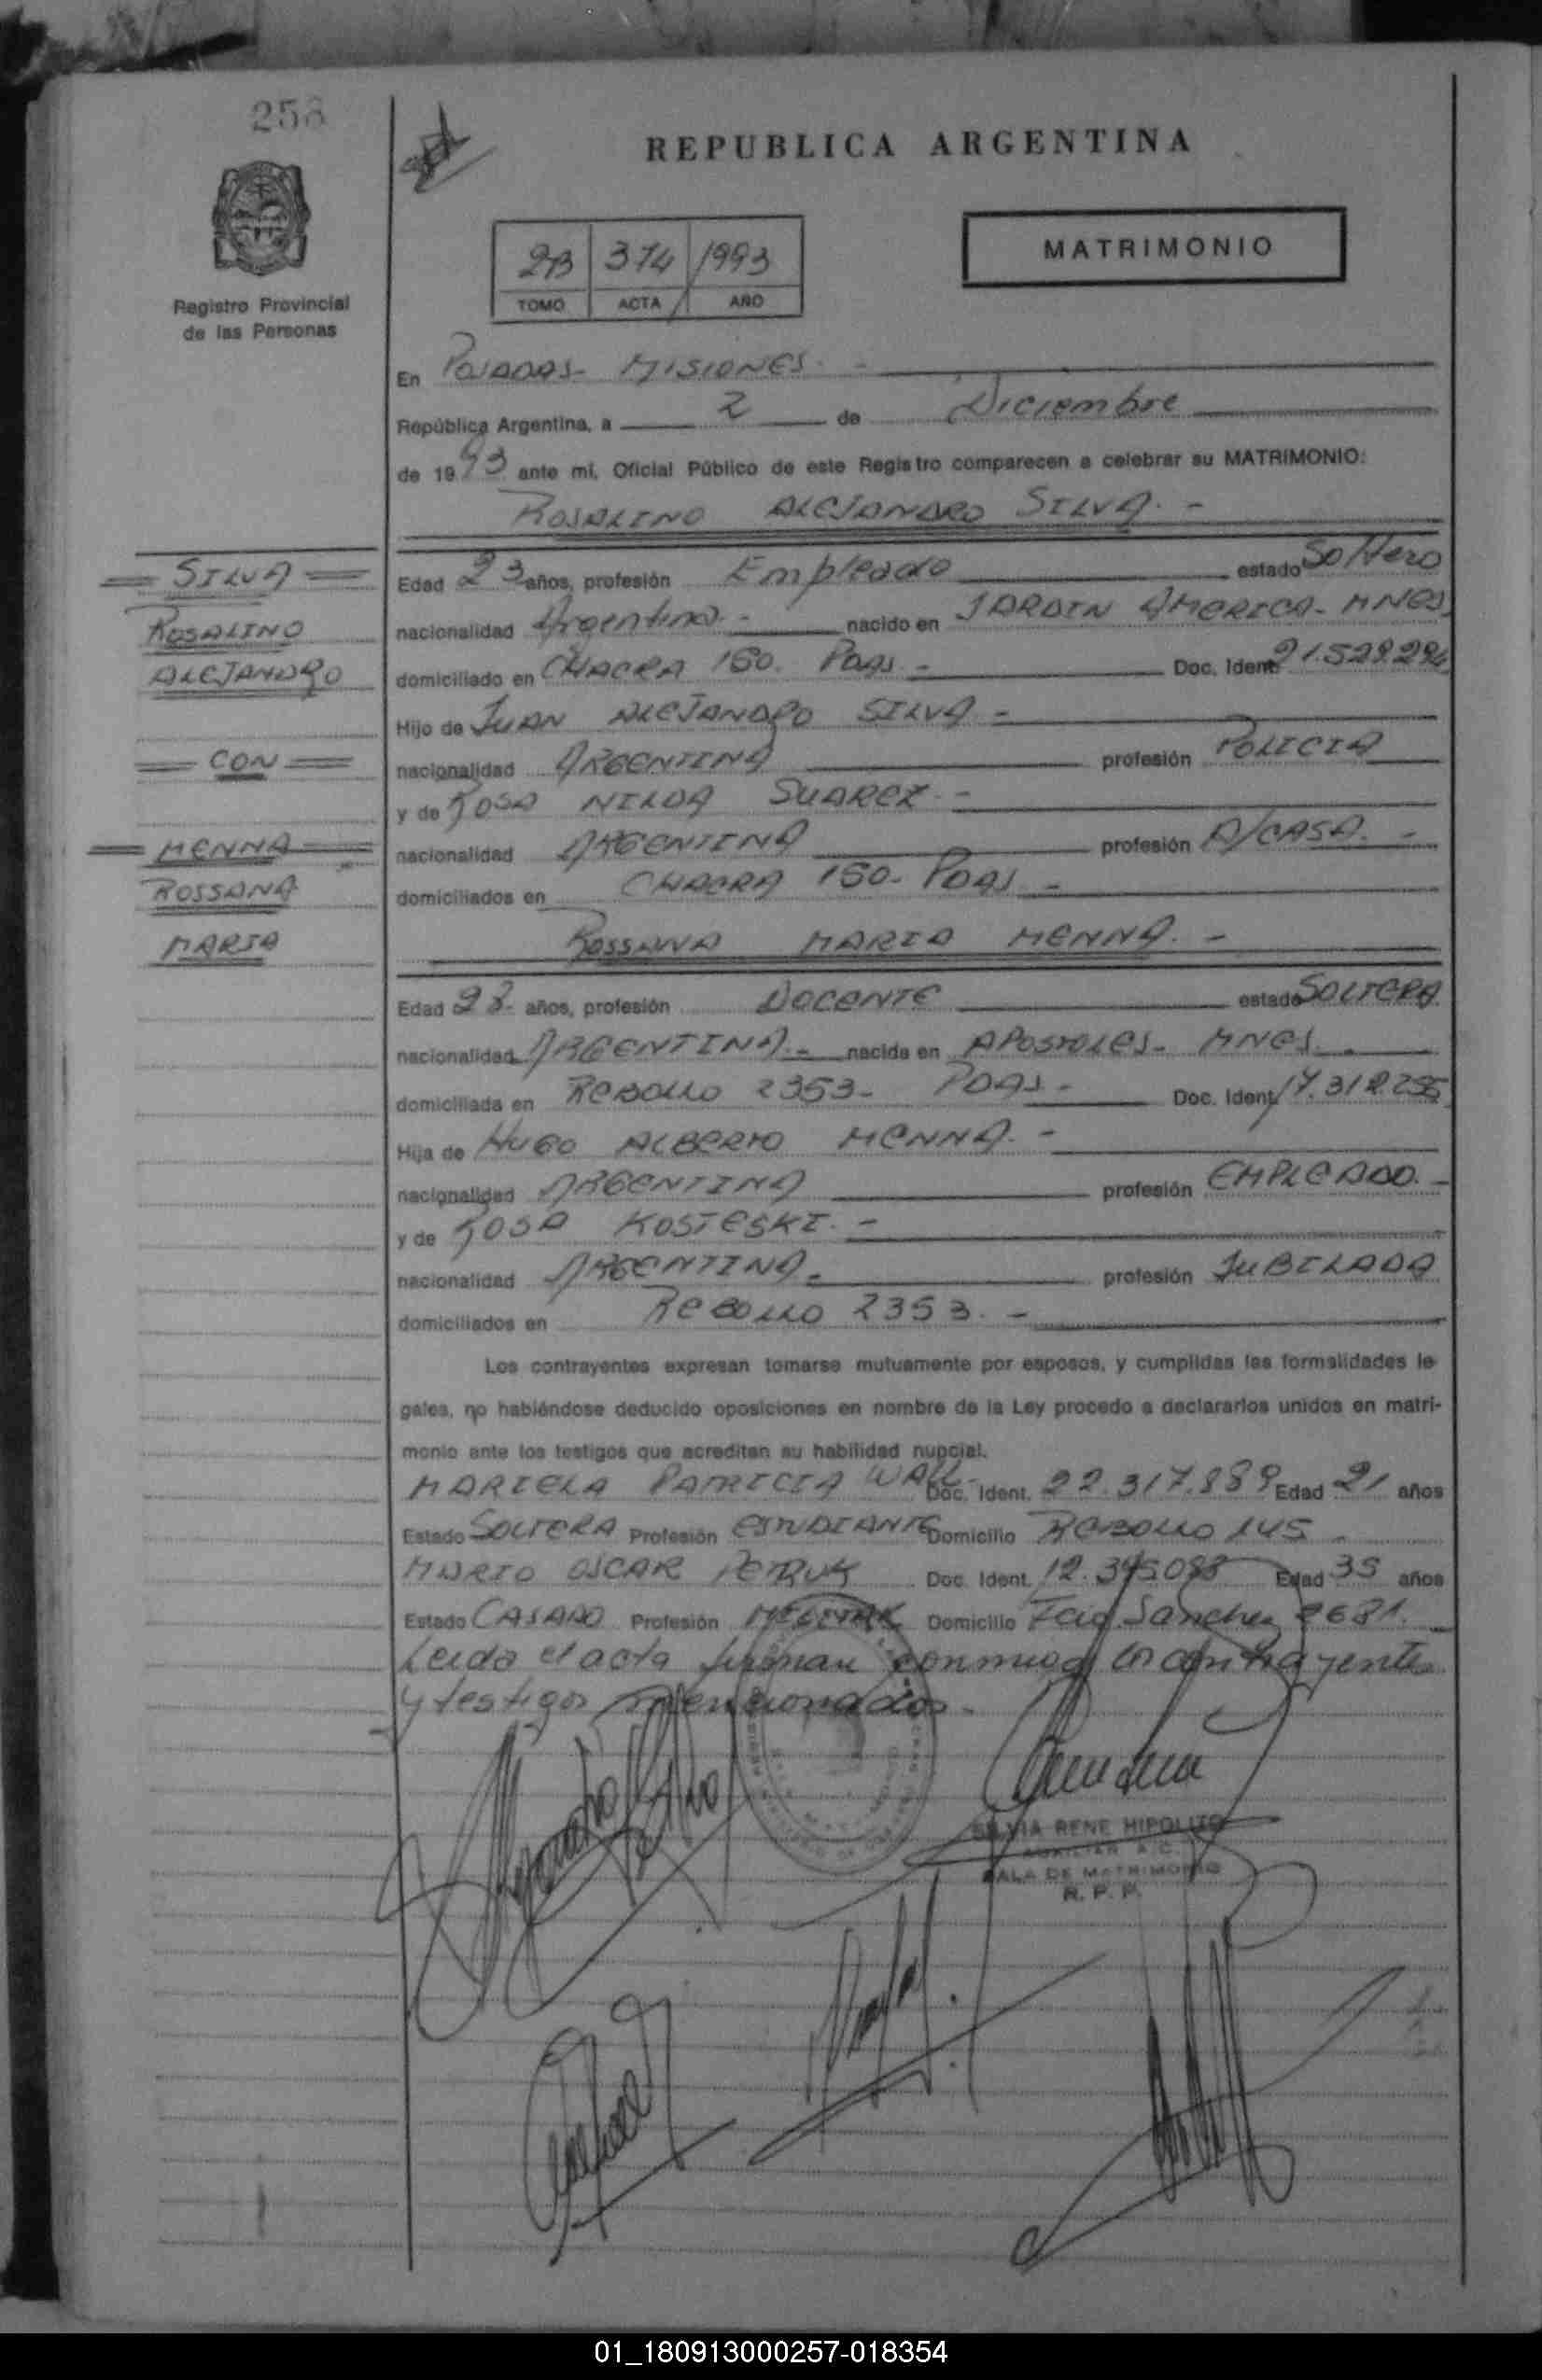 258
REPUBLICA ARGENTINA
2B 374 1993
TOMO ACTA AÑO
MATRIMONIO
Registro Provincial
de las Personas
En POSADAS - MISIONES. -
República Argentina, a 2 de Diciembre
de 1993 ante mí, Oficial Público de este Registro comparecen a celebrar su MATRIMONIO:
ROSALINO ALEJANDRO SILVA. -
SILVA
ROSALINO
ALEJANDRO
CON
MENNA
ROSSANA
MARIA
Edad 23 años, profesión Empleado estado Soltero
nacionalidad Argentina. - nacido en JARDIN AMERICA - MNES
domiciliado en CHACRA 150. Pdas. - Doc. Ident.
Hijo de JUAN ALEJANDRO SILVA -
nacionalidad ARGENTINA profesión POLICIA
y de ROSA NILDA SUAREZ. -
nacionalidad ARGENTINA profesión A/CASA. -
domiciliados en CHACRA 150 - Pdas -
ROSSANA MARIA MENNA. -
Edad 28 años, profesión DOCENTE estado SOLTERA
nacionalidad ARGENTINA. - nacida en APOSTOLES - MNES.
domiciliada en REBOLLO 2353 - PDAS - Doc. Ident.
Hija de HUGO ALBERTO MENNA. -
nacionalidad ARGENTINA profesión EMPLEADO. -
y de ROSA KOSTESKI. -
nacionalidad ARGENTINA. profesión JUBILADA
domiciliados en REBOLLO 2353. -
Los contrayentes expresan tomarse mutuamente por esposos, y cumplidas las formalidades le-
gales, no habiéndose deducido oposiciones en nombre de la Ley procedo a declararlos unidos en matri-
monio ante los testigos que acreditan su habilidad nupcial.
MARIELA PATRICIA WALL Doc. Ident. 22.317.889 Edad 21 años
Estado SOLTERA Profesión ESTUDIANTE Domicilio REBOLLO 145
MARIO OSCAR PETRUK Doc. Ident. Edad 35 años
Estado CASADO Profesión MILITAR Domicilio Fcio. Sanchez 2681.
Leida el acta firman conmigo los contrayentes
y testigos mencionados. -
SILVIA RENE HIPOLITO
AUXILIAR A. C.
SALA DE MATRIMONIO
R. P. P.
01_180913000257-018354